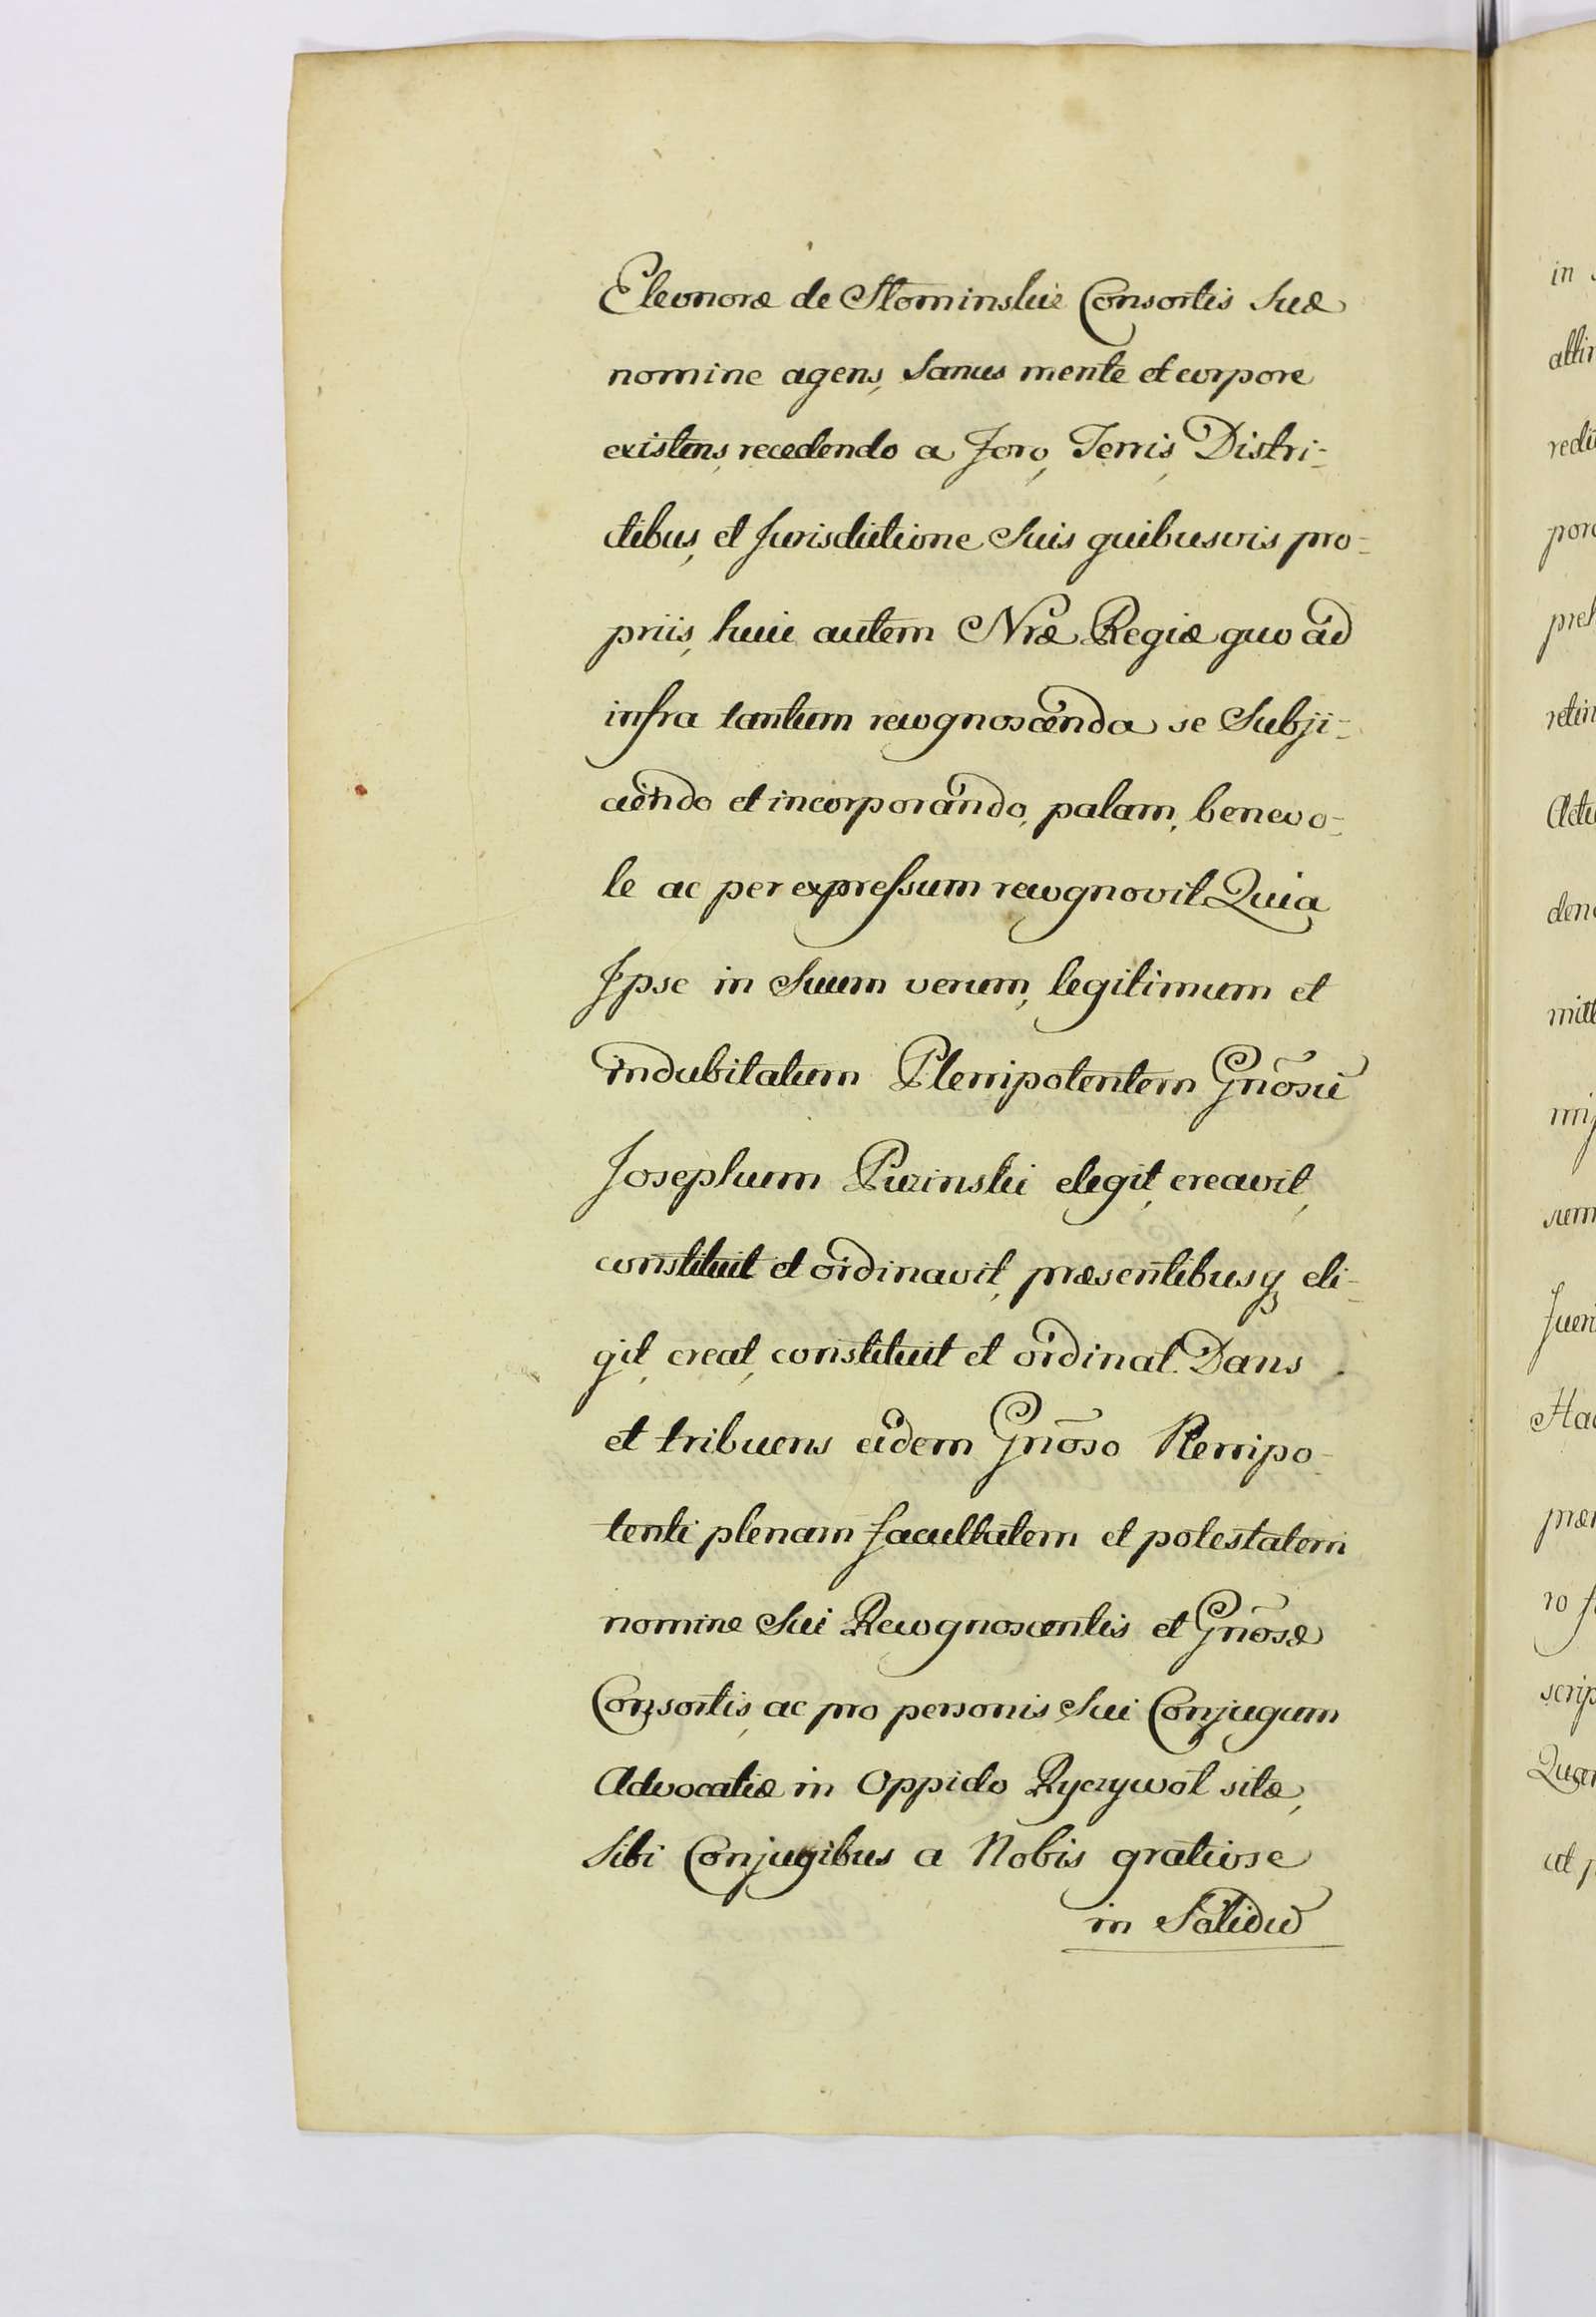 Eleonoræ de Słominskie Consortis Suæ
nomine agens, Sanus mente et corpore
existens, recedendo a Foro, Terris, Distri-
ctibus, et Jurisdictione Suis quibusvis pro-
priis, huic autem Nræ Regiæ quo ad
infra tantum recognoscenda se Subji-
ciendo et incorporando, palam, benevo-
le ac per expressum recognovit Quia
Ipse in Suum verum, legitimum et
indubitatum Plenipotentem Gnõsũ
Josephum Puzinski elegit, creavit,
constituit et ordinavit, præsentibusq3 eli-
git, creat, constituit et ordinat. Dans
et tribuens eidem Gnõso Plenipo-
tenti plenam facultatem et potestatem
nomine Sui Recognoscentis et Gnõsæ
Consortis, ac pro personis Sui Conjugum
Advocatiæ in Oppido Ryczywoł sitæ,
Sibi Conjugibus a Nobis gratiose
in Solidũ
in
redu
poro
preh
retin
Actu
den
mitt
Juen
Hac
præ
ro
scrip
Quæ